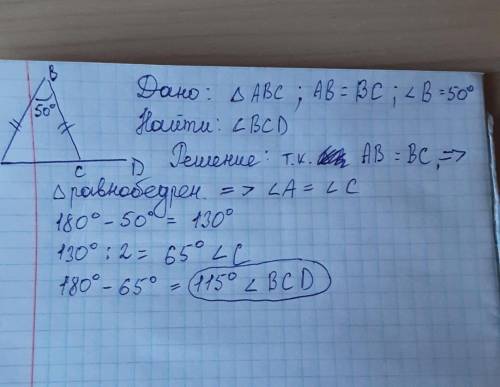 B
50°
C
D
Дано: △ ABC ; AB = BC ; ∠B = 50°
Найти: ∠BCD
Решение: т.к. AB = BC, =>
△ равнобедрен. => ∠A = ∠C
180° - 50° = 130°
130° : 2 = 65° ∠C
180° - 65° = 115° ∠BCD